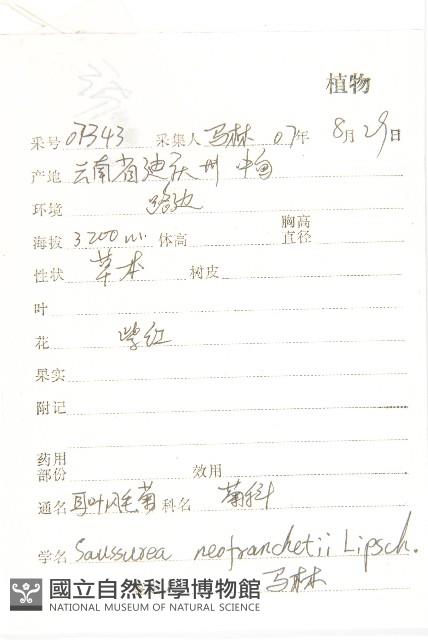 植物
采号 07343 采集人 马林 07年 8月29日
产地 云南省迪庆州 中甸
环境 路边
海拔 3200m. 体高 胸高直径
性状 草本 树皮
叶
花 紫红
果实
附记
药用部份 效用
通名 耳叶风毛菊 科名 菊科
学名 Saussurea neofranchetii Lipsch.
马林
國立自然科學博物館
NATIONAL MUSEUM OF NATURAL SCIENCE